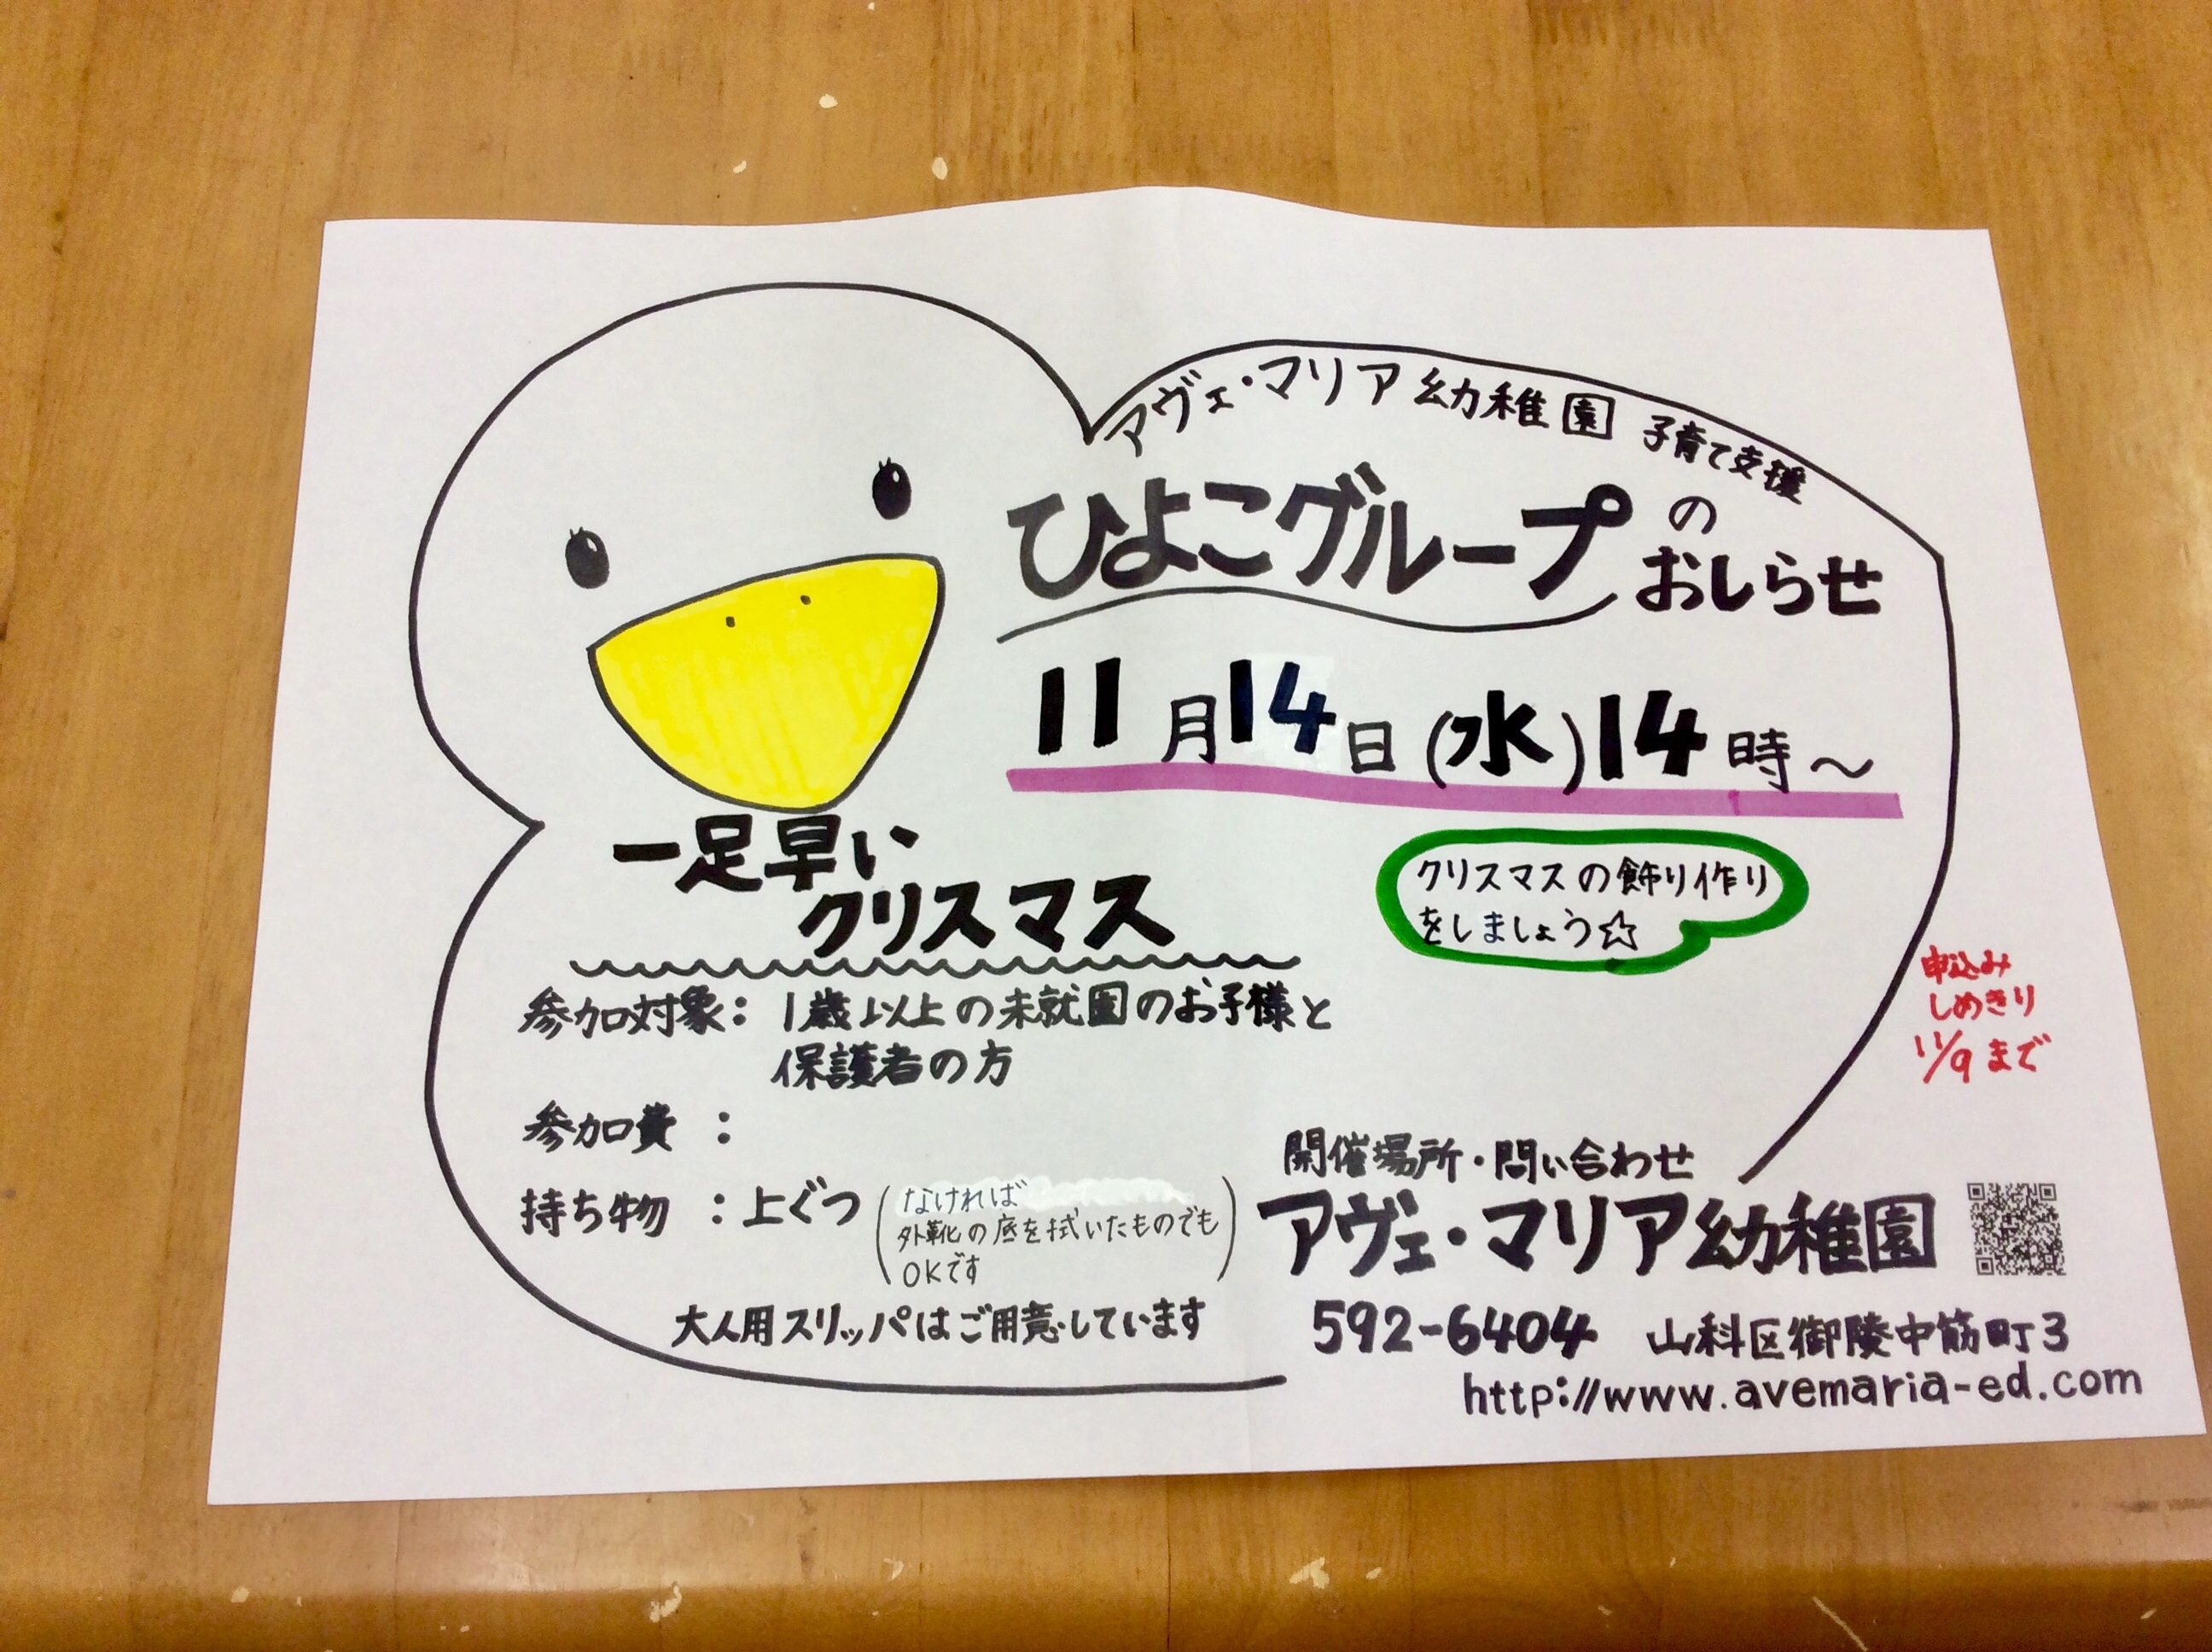 アヴェ・マリア幼稚園 子育て支援
ひよこグループの
おしらせ
11月14日(水)14時～
一足早い
クリスマス
クリスマスの飾り作り
をしましょう☆
参加対象：1歳以上の未就園のお子様と
保護者の方
参加費：
持ち物：上ぐつ(なければ
外靴の底を拭いたものでも
OKです)
大人用スリッパはご用意しています
申込み
しめきり
11/9まで
開催場所・問い合わせ
アヴェ・マリア幼稚園
592-6404 山科区御陵中筋町3
http://www.avemaria-ed.com